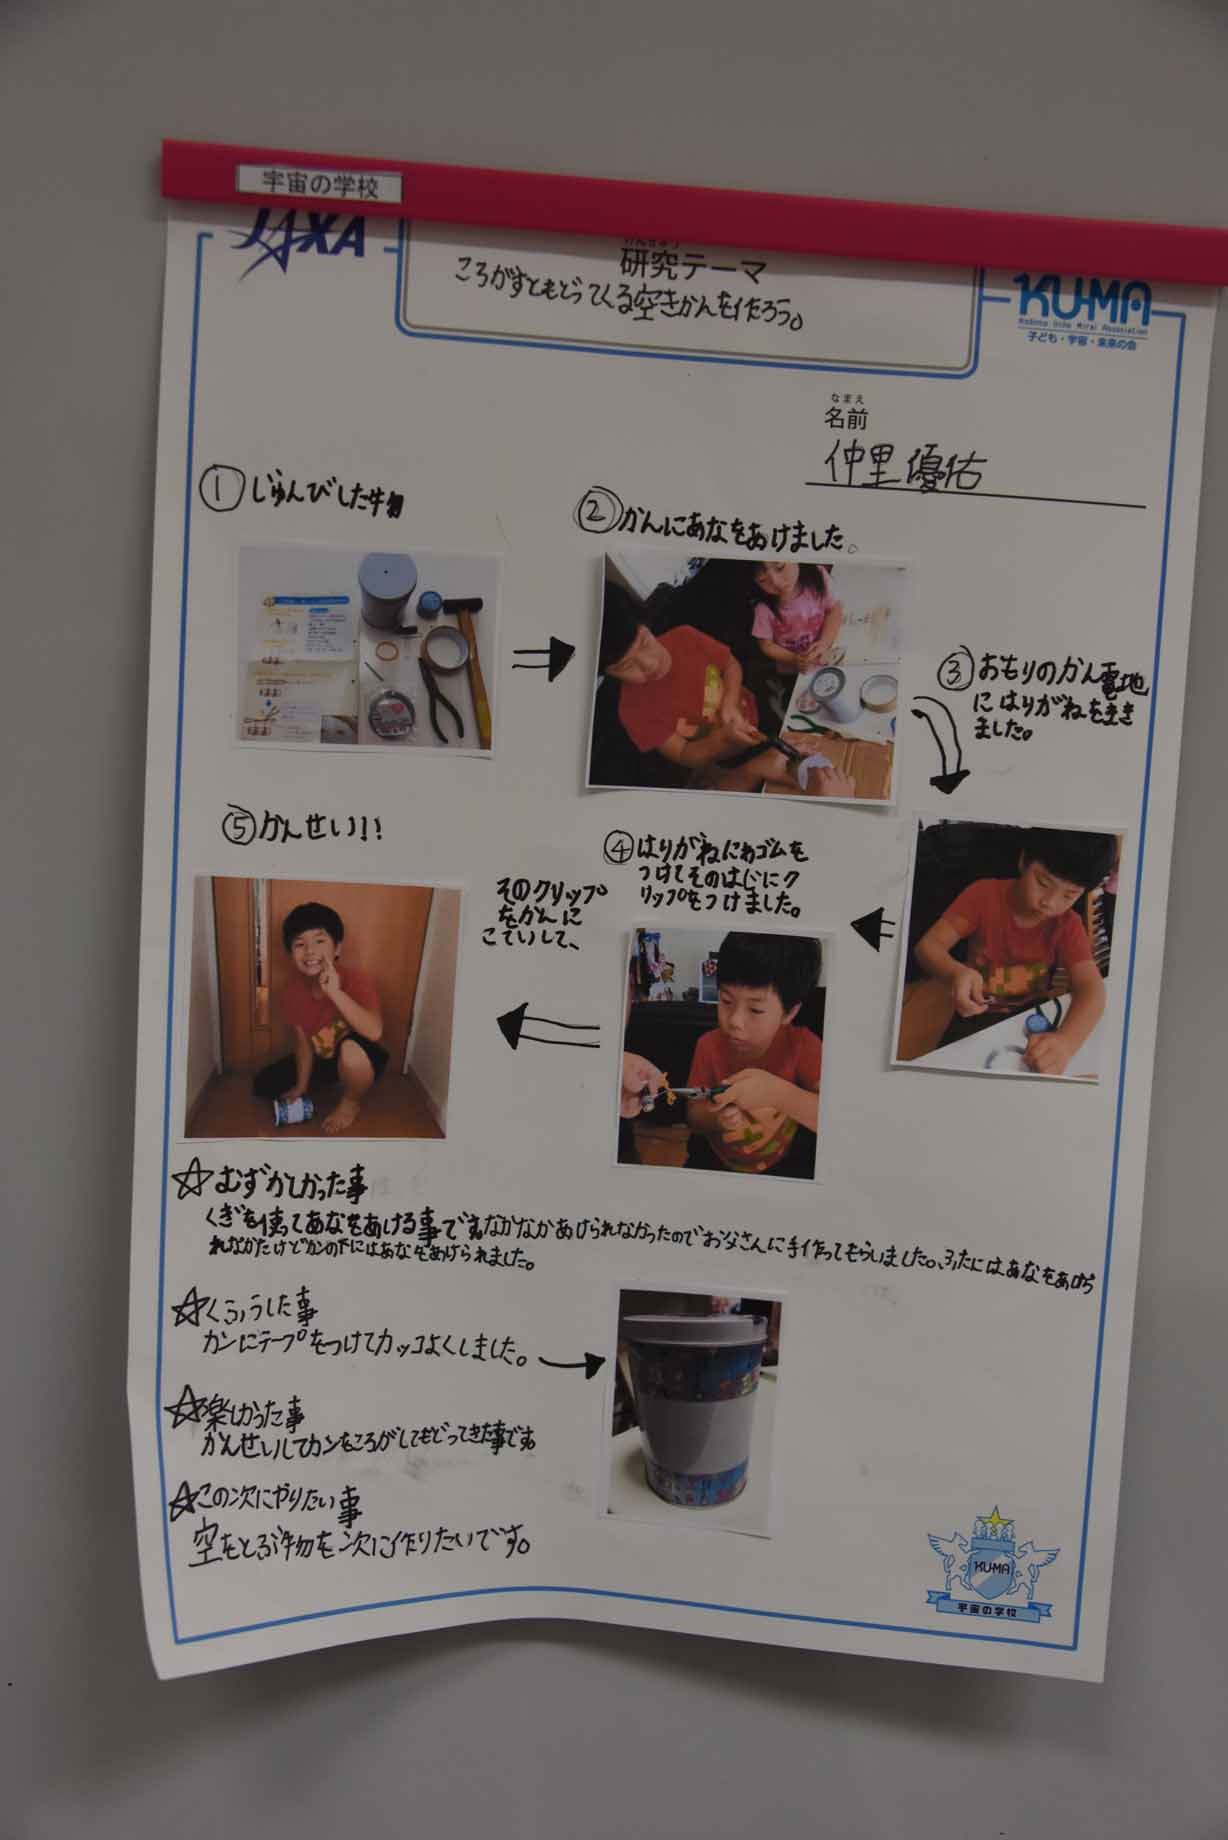 宇宙の学校
JAXA
けんきゅう
研究テーマ
ころがすともどってくる空きかんを作ろう。
KU-MA
Kodomo Uchu Mirai Association
子ども・宇宙・未来の会
なまえ
名前
仲里優佑
① じゅんびした物
② かんにあなをあけました。
③ おもりのかん電地
にはりがねをまき
ました。
④ はりがねにわゴムを
つけてそのはじにク
リップをつけました。
そのクリップ
をかんに
こていして、
⑤ かんせい!!
☆ むずかしかった事
くぎを使ってあなをあける事です。なかなかあけられなかったのでお父さんに手作ってもらいました。ふたにはあなをあけら
れなかたけどカンの下にはあなをあけられました。
☆ くふうした事
カンにテープをつけてカッコよくしました。
☆ 楽しかった事
かんせいしてカンをころがしてもどってきた事です。
☆ この次にやりたい事
空をとぶ物を次に作りたいです。
KU-MA
宇宙の学校